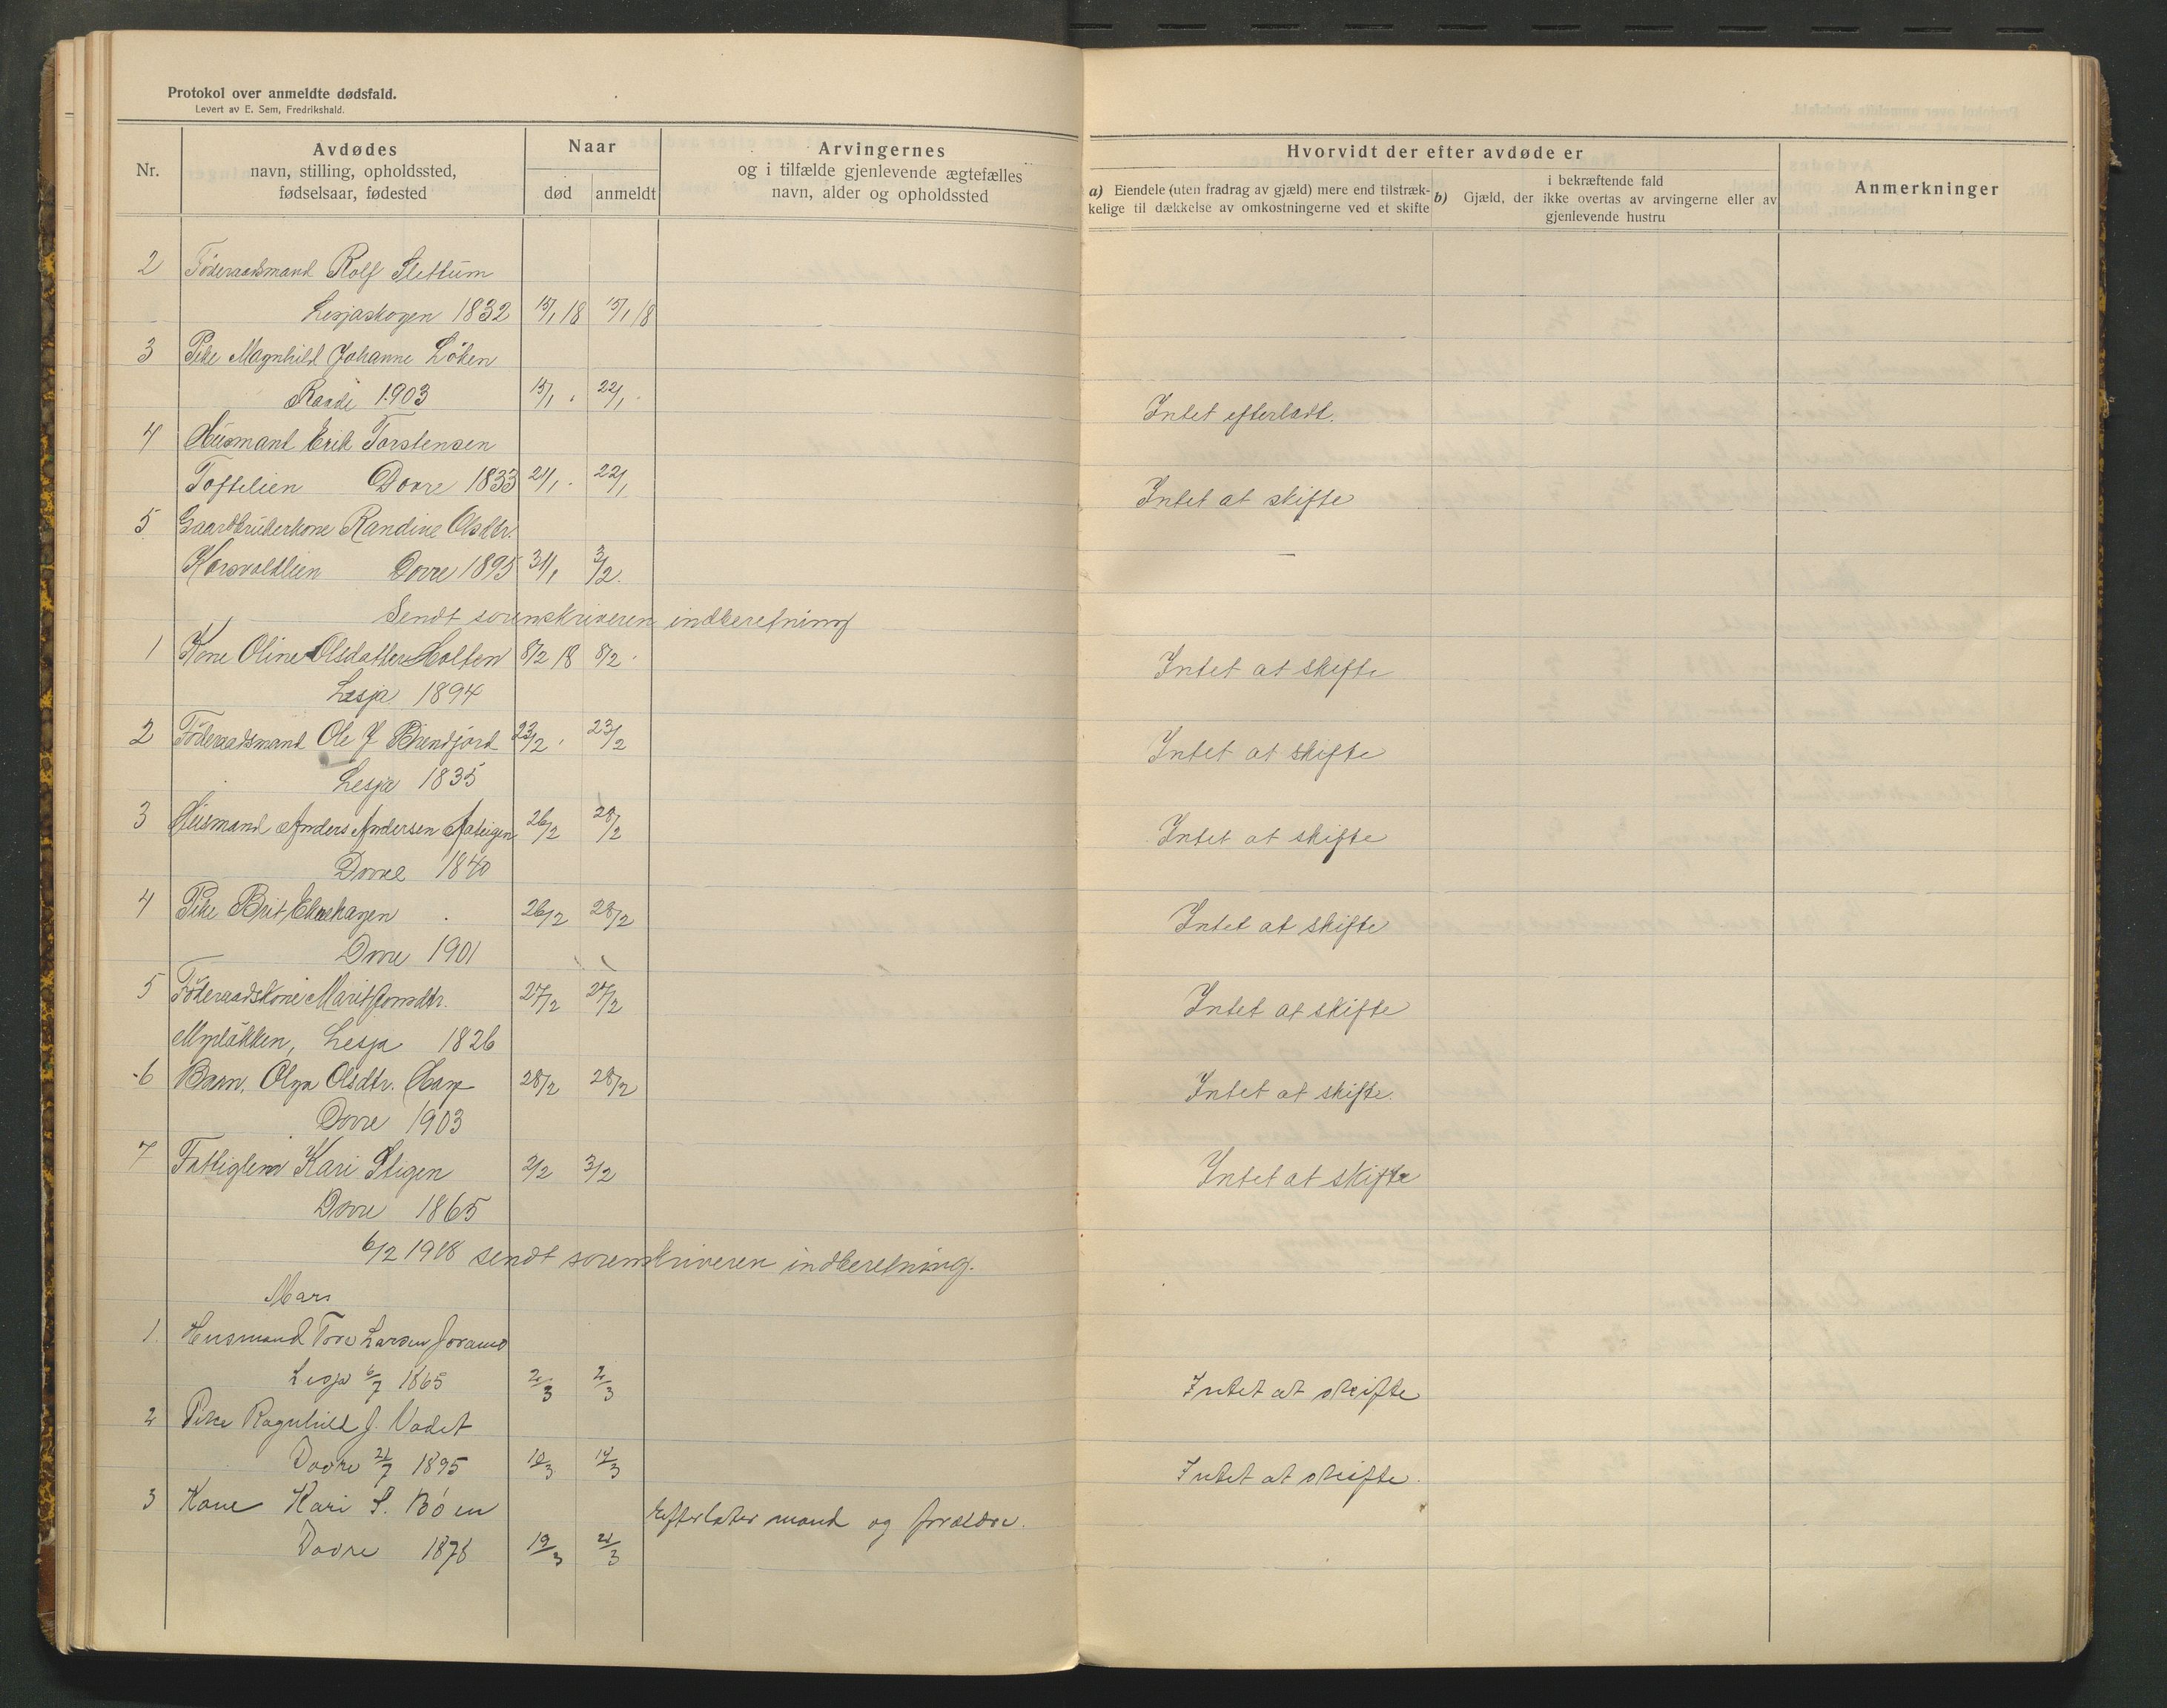 Protokol over anmeldte dødsfald.
Levert av E. Sem, Fredrikshald.
Nr.
Avdødes
navn, stilling, opholdssted,
fødselsaar, fødested
Naar
død anmeldt
Arvingernes
og i tilfælde gjenlevende ægtefælles
navn, alder og opholdssted
Hvorvidt der efter avdøde er
a) Eiendele (uten fradrag av gjæld) mere end tilstræk-
kelige til dækkelse av omkostningerne ved et skifte
i bekræftende fald
b) Gjæld, der ikke overtas av arvingerne eller av
gjenlevende hustru
Anmerkninger
2 Föderaadsmand Rolf Slettum
Lesjaskogen 1832 15/1 18 15/1 18
3 Pike Magnhild Johanne Löken
1903 15/1 . 22/1 . Intet efterladt.
4 Husmand Erik Torstensen
Toftelien Dovre 1833 21/1 . 22/1 Intet at skifte
5 Gaardbrukerkone Randine Olsdtr.
Dovre 1895 31/1 3/2. —
Sendt sorenskriveren indberetning
1 Kone Oline Olsdatter Holten 8/2 18 8/2 . Intet at skifte
Lesja 1894
2 Föderaadsmand Ole J 23/2 . 23/2 Intet at skifte
Lesja 1835
3 Husmand Anders Andersen 26/2 28/2 Intet at skifte
Dovre 1840
4 Pike Brit 26/2 28/2 Intet at skifte
Dovre 1901
5 Föderaadskone Marit 27/2 27/2 Intet at skifte
Lesja 1826
6 Barn, Olga Olsdtr. 28/2 28/2 Intet at skifte.
Dovre 1903
7 Fattiglem Kari Stigen 2/2 3/2 Intet at skifte
Dovre 1865
6/2 1918 sendt sorenskriveren indberetning.
Mars
1. Husmand Tore Larsen Joramo
Lesja 6/7 1865 2/3 2/3 Intet at skifte
2 Pike Ragnhild J. Vadet
Dovre 21/7 1895 12/3 14/3 Intet at skifte.
3 Kone Kari S. Böen Efterlater mand og forældre.
Dovre 1878 19/3 21/3